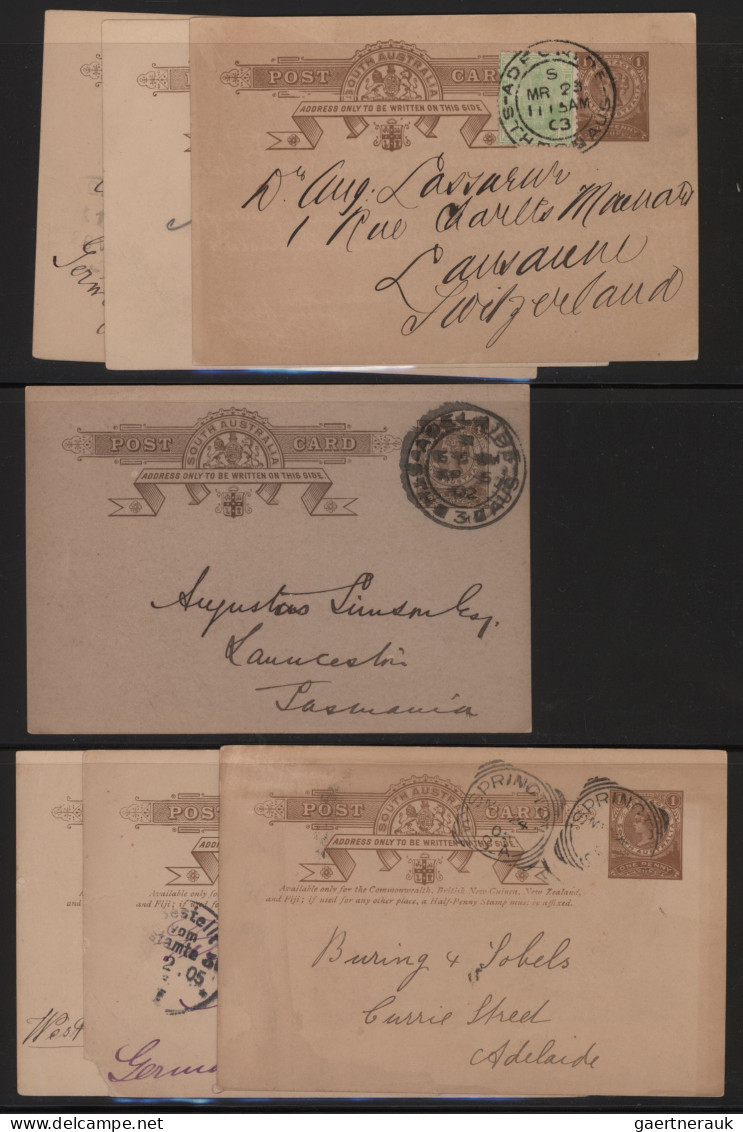 POST
SOUTH AUSTRALIA
CARD
ADDRESS ONLY TO BE WRITTEN ON THIS SIDE
S
MR 23
11 15 AM
03
STH AUS
Dr Aug.
1 Rue Charles Monnard
Lausanne
Switzerland
POST
SOUTH AUSTRALIA
CARD
ADDRESS ONLY TO BE WRITTEN ON THIS SIDE
ADELAIDE
02
3
Augustus Simson Esq.
Launceston
Tasmania
POST
SOUTH AUSTRALIA
CARD
ADDRESS ONLY TO BE WRITTEN ON THIS SIDE
SPRING
SPRING
ONE PENNY
Available only for the Commonwealth, British New Guinea, New Zealand,
and Fiji; if used for any other place, a Half-Penny Stamp must is affixed.
Buring & Sobels
Currie Street
Adelaide
Available only fo
and Fiji; if used
Bestellt
vom
tamte
2.05
Germ
Available
and Fiji
West
gaertnerauk